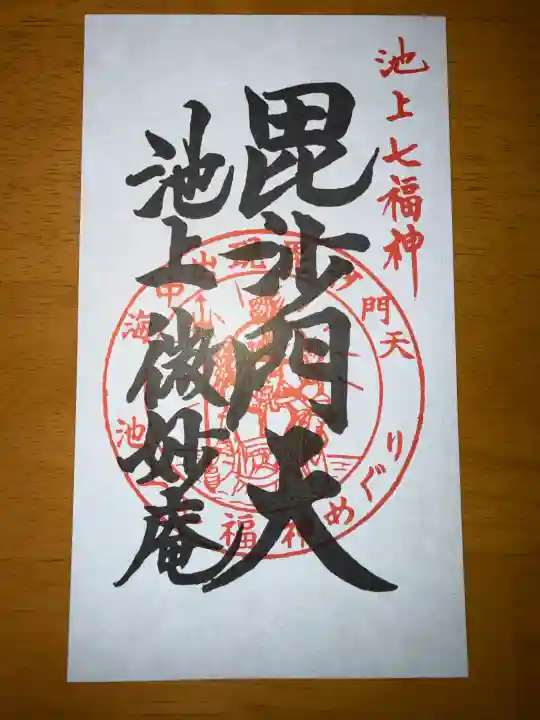 池上七福神
毘沙門天
池上微妙庵
門天
海中山
池
福神めぐり